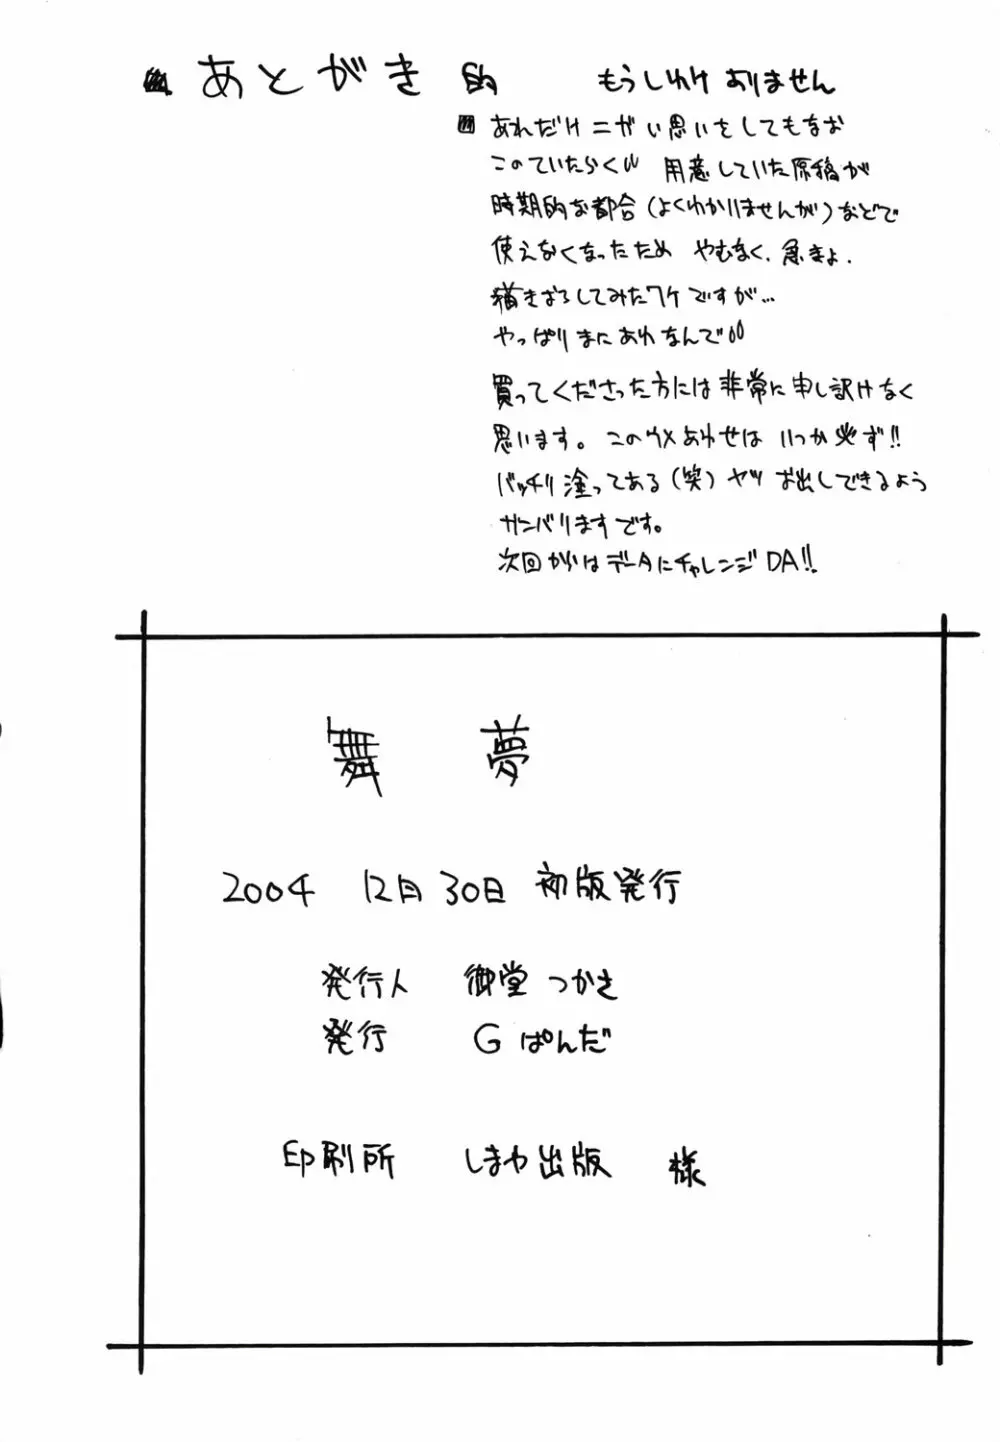 あとがき的 もうしわけありません
あれだけニガい思いをしてもなお
このていたらく 用意していた原稿が
時期的な都合（よくわかりませんが）などで
使えなくなったため やむなく、急きょ、
描きおろしてみたワケですが…
やっぱりまにあわなんで
買ってくださった方には非常に申し訳けなく
思います。このウメあわせは いつか必ず!!
バッチリ塗ってある（笑）ヤツ お出しできるよう
ガンバリますです。
次回からはデータにチャレンジDA!!
舞 夢
2004 12月30日 初版発行
発行人 御堂つかさ
発行 Gぱんだ
印刷所 しまや出版 様